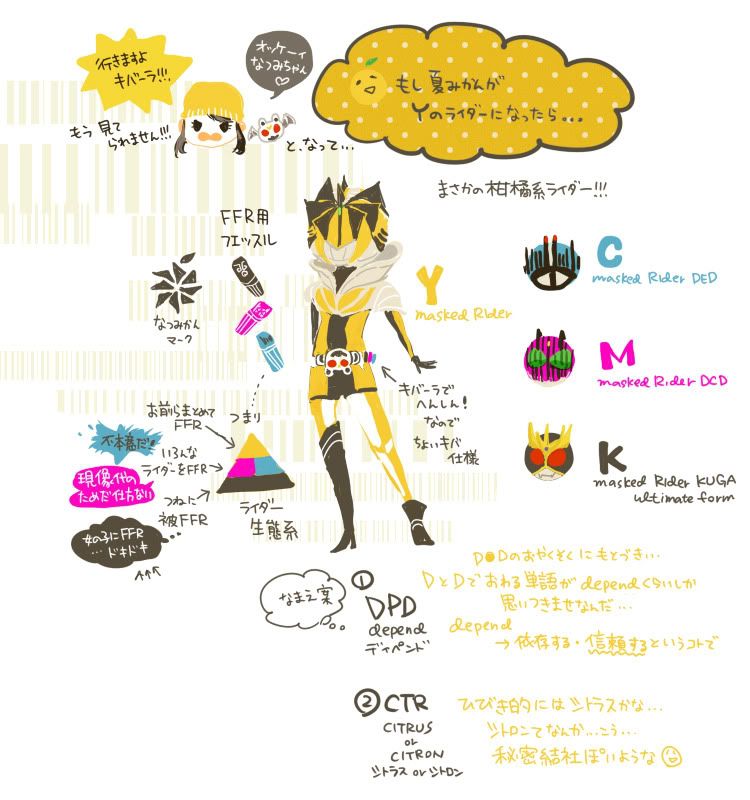 行きますよ
キバーラ!!!
オッケーィ
なつみちゃん
♡
もう 見て
られません!!!
と、なって…
もし夏みかんが
Yのライダーになったら...
まさかの柑橘系ライダー!!!
FFR用
フエッスル
なつみかん
マーク
Y
masked Rider
C
masked Rider DED
M
masked Rider DCD
K
masked Rider KUGA
ultimate form
キバーラで
へんしん!
なので
ちょいキバ
仕様
お前らまとめて
FFR
つまり
不本意だ!
いろんな
ライダーをFFR
現像代の
ためだ仕方ない
つねに
被FFR
女の子にFFR
…ドキドキ
ライダー
生態系
なまえ案
①
DPD
depend
ディペンド
D●Dのおやくそくにもとづき…
DとDでおわる単語がdependくらいしか
思いつきませなんだ…
depend
→依存する・信頼するというコトで
②CTR
CITRUS
or
CITRON
シトラス or シトロン
ひびき的にはシトラスかな…
シトロンてなんか…こう…
秘密結社ぽいような